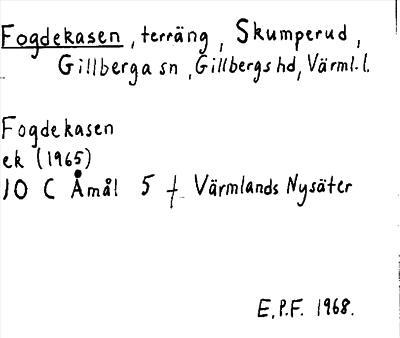 Fogdekasen, terräng, Skumperud,
Gillberga sn, Gillbergs hd, Värml. l.
Fogdekasen
ek (1965)
10 C Åmål 5 f Värmlands Nysäter
E.P.F. 1968.